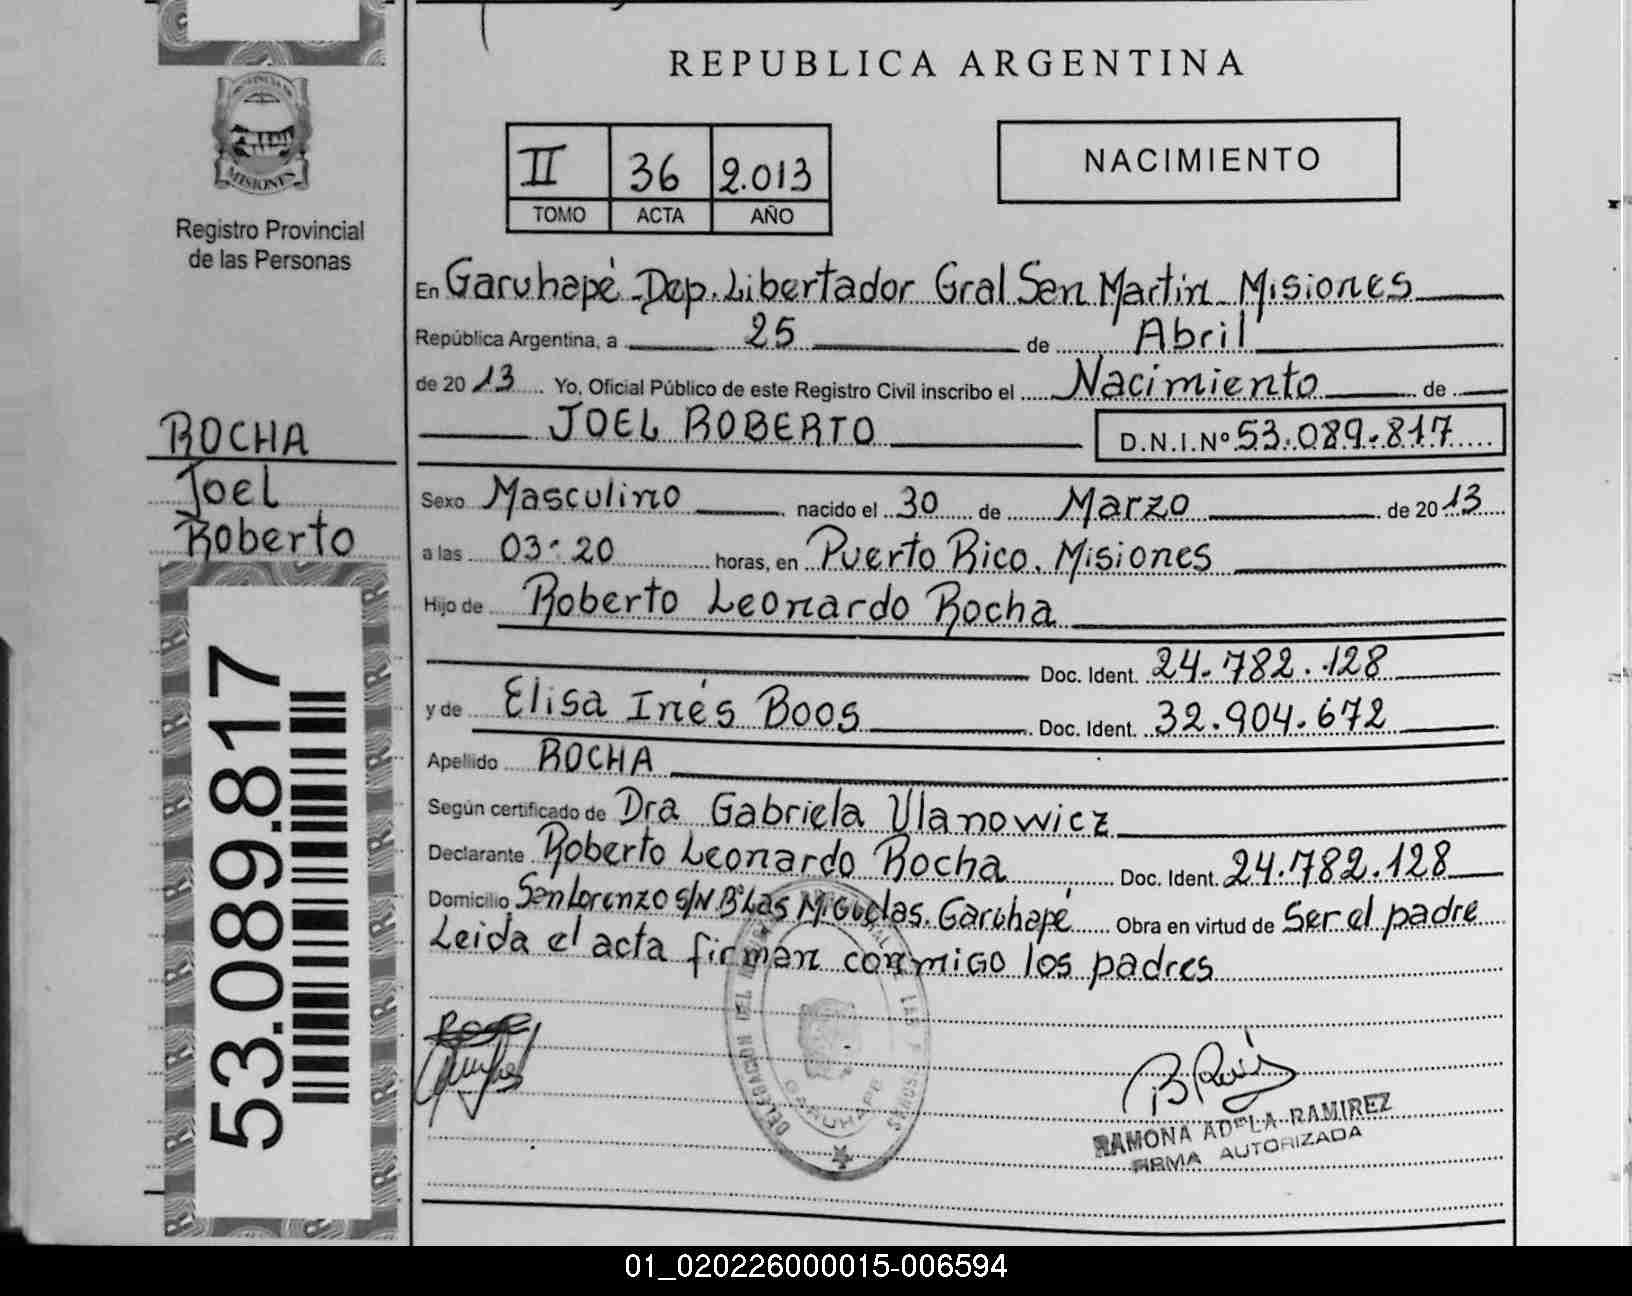 REPUBLICA ARGENTINA
MISIONES
Registro Provincial
de las Personas
II 36 2.013
TOMO ACTA AÑO
NACIMIENTO
En Garuhapé - Dep. Libertador Gral San Martin - Misiones
República Argentina, a 25 de Abril
de 2013 Yo, Oficial Público de este Registro Civil inscribo el Nacimiento de
JOEL ROBERTO D.N.I.Nº 53.089.817
ROCHA
Joel
Roberto
Sexo Masculino nacido el 30 de Marzo de 2013
a las 03:20 horas, en Puerto Rico. Misiones
Hijo de Roberto Leonardo Rocha
Doc. Ident. 24.782.128
y de Elisa Inés Boos Doc. Ident. 32.904.672
Apellido ROCHA
Según certificado de Dra Gabriela Ulanowicz
Declarante Roberto Leonardo Rocha Doc. Ident. 24.782.128
Domicilio San Lorenzo S/N Bº Las Miguelas. Garuhapé Obra en virtud de Ser el padre
Leida el acta firman conmigo los padres
53.089.817
DELEGACION DEL
GARUHAPE
RAMONA ADELA RAMIREZ
FIRMA AUTORIZADA
01_020226000015-006594